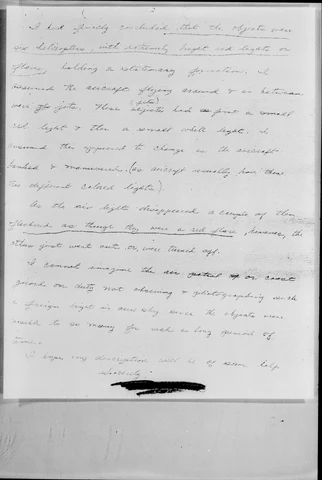 2
I had finally concluded, that the objects were
six helicopters, with extremely bright red lights or
flares holding a stationary formation. I
assumed the aircraft flying around & in between
were jets. These (jets) had first a small
red light & then a small white light. I
assumed this appeared to change as the aircraft
banked & maneuvered. (as aircraft usually have these
two different colored lights).
As the six lights disappeared a couple of them
flickered as though they were a red flare, however, the
other just went out or were turned off.
I cannot imagine the patrol or coast
guard on duty not observing & photographing such
a foreign sight in our sky since the objects were
visible to so many for such a long period of
time.
I hope my description will be of some help
Sincerely